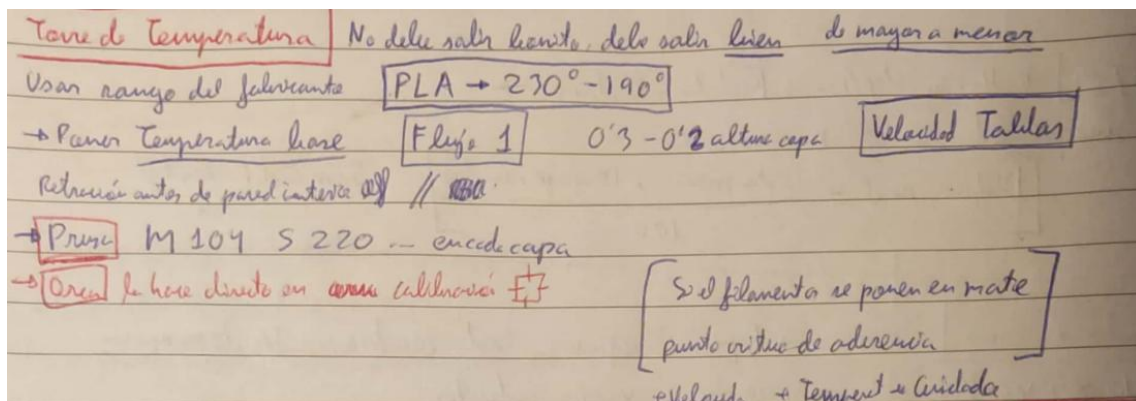 Torre de Temperatura No debe salir bonito, debe salir bien de mayor a menor
Usar rango del fabricante PLA → 230° - 190°
→ Poner Temperatura base Flujo 1 0'3 - 0'2 altura capa Velocidad Tablas
Retracción antes de pared interior off //
→ Prusa M104 S220 ... en cada capa
→ Orca lo hace directo en calibración
Si el filamento se ponen en mate
punto critico de aderencia
+ Temperat Cuidado